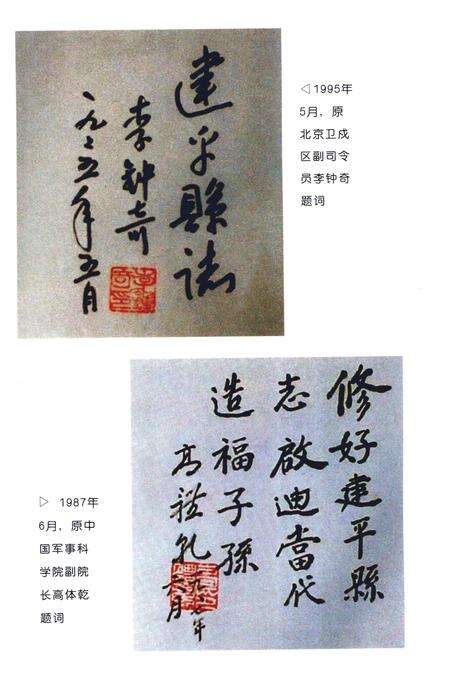 建平縣誌
李钟奇
一九九五年五月
◁1995年
5月，原
北京卫戍
区副司令
员李钟奇
题词
修好建平縣
志啟迪當代
造福子孫
高体乾
一九八七年
六月
▷ 1987年
6月，原中
国军事科
学院副院
长高体乾
题词